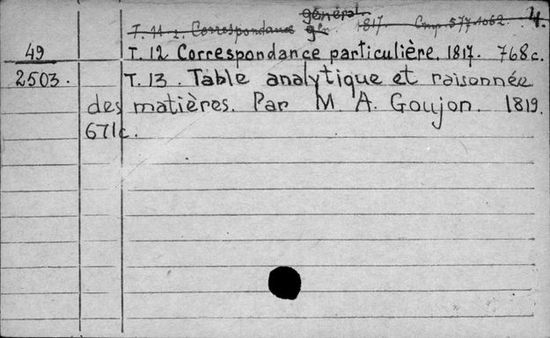 général.
T. 11 2. Correspondance gle 1817 Cmp. 577-1062. 4.
49 T. 12 Correspondance particulière. 1817. 768c.
2503. T. 13. Table analytique et raisonnée
des matières. Par M A. Goujon. 1819.
671c.